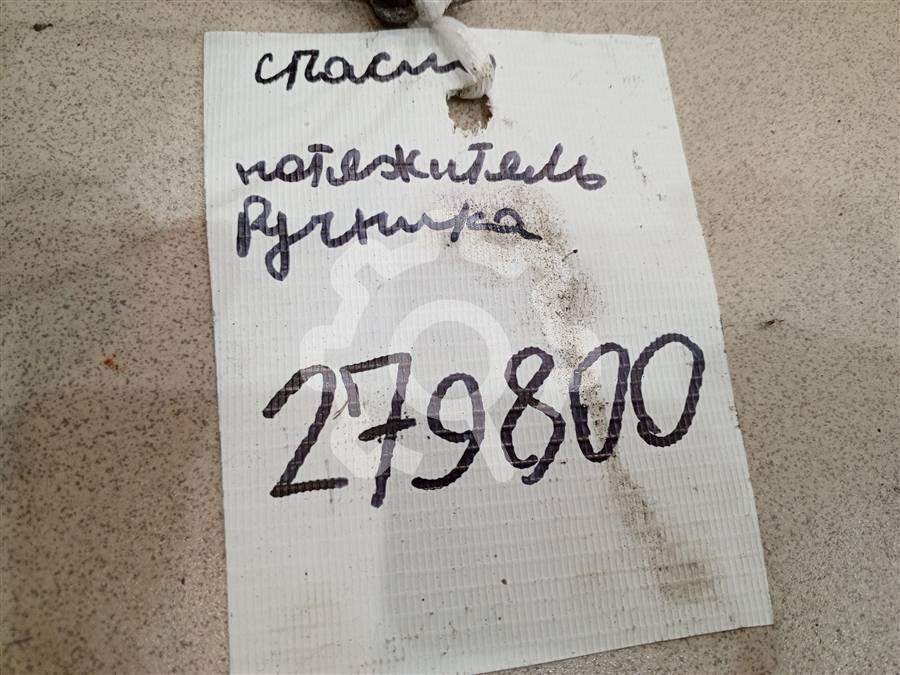 натяжитель
Ручника
279800